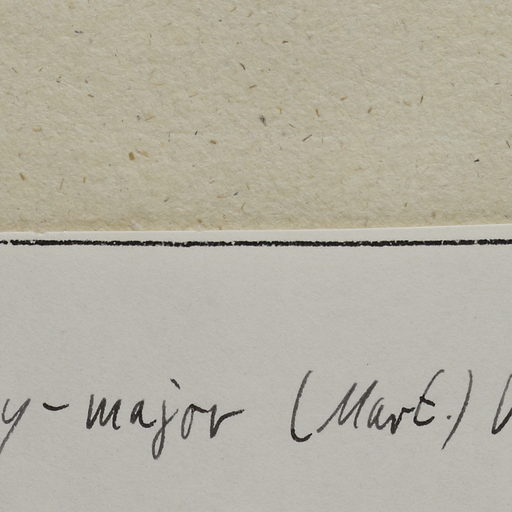 y-major (Mart.)